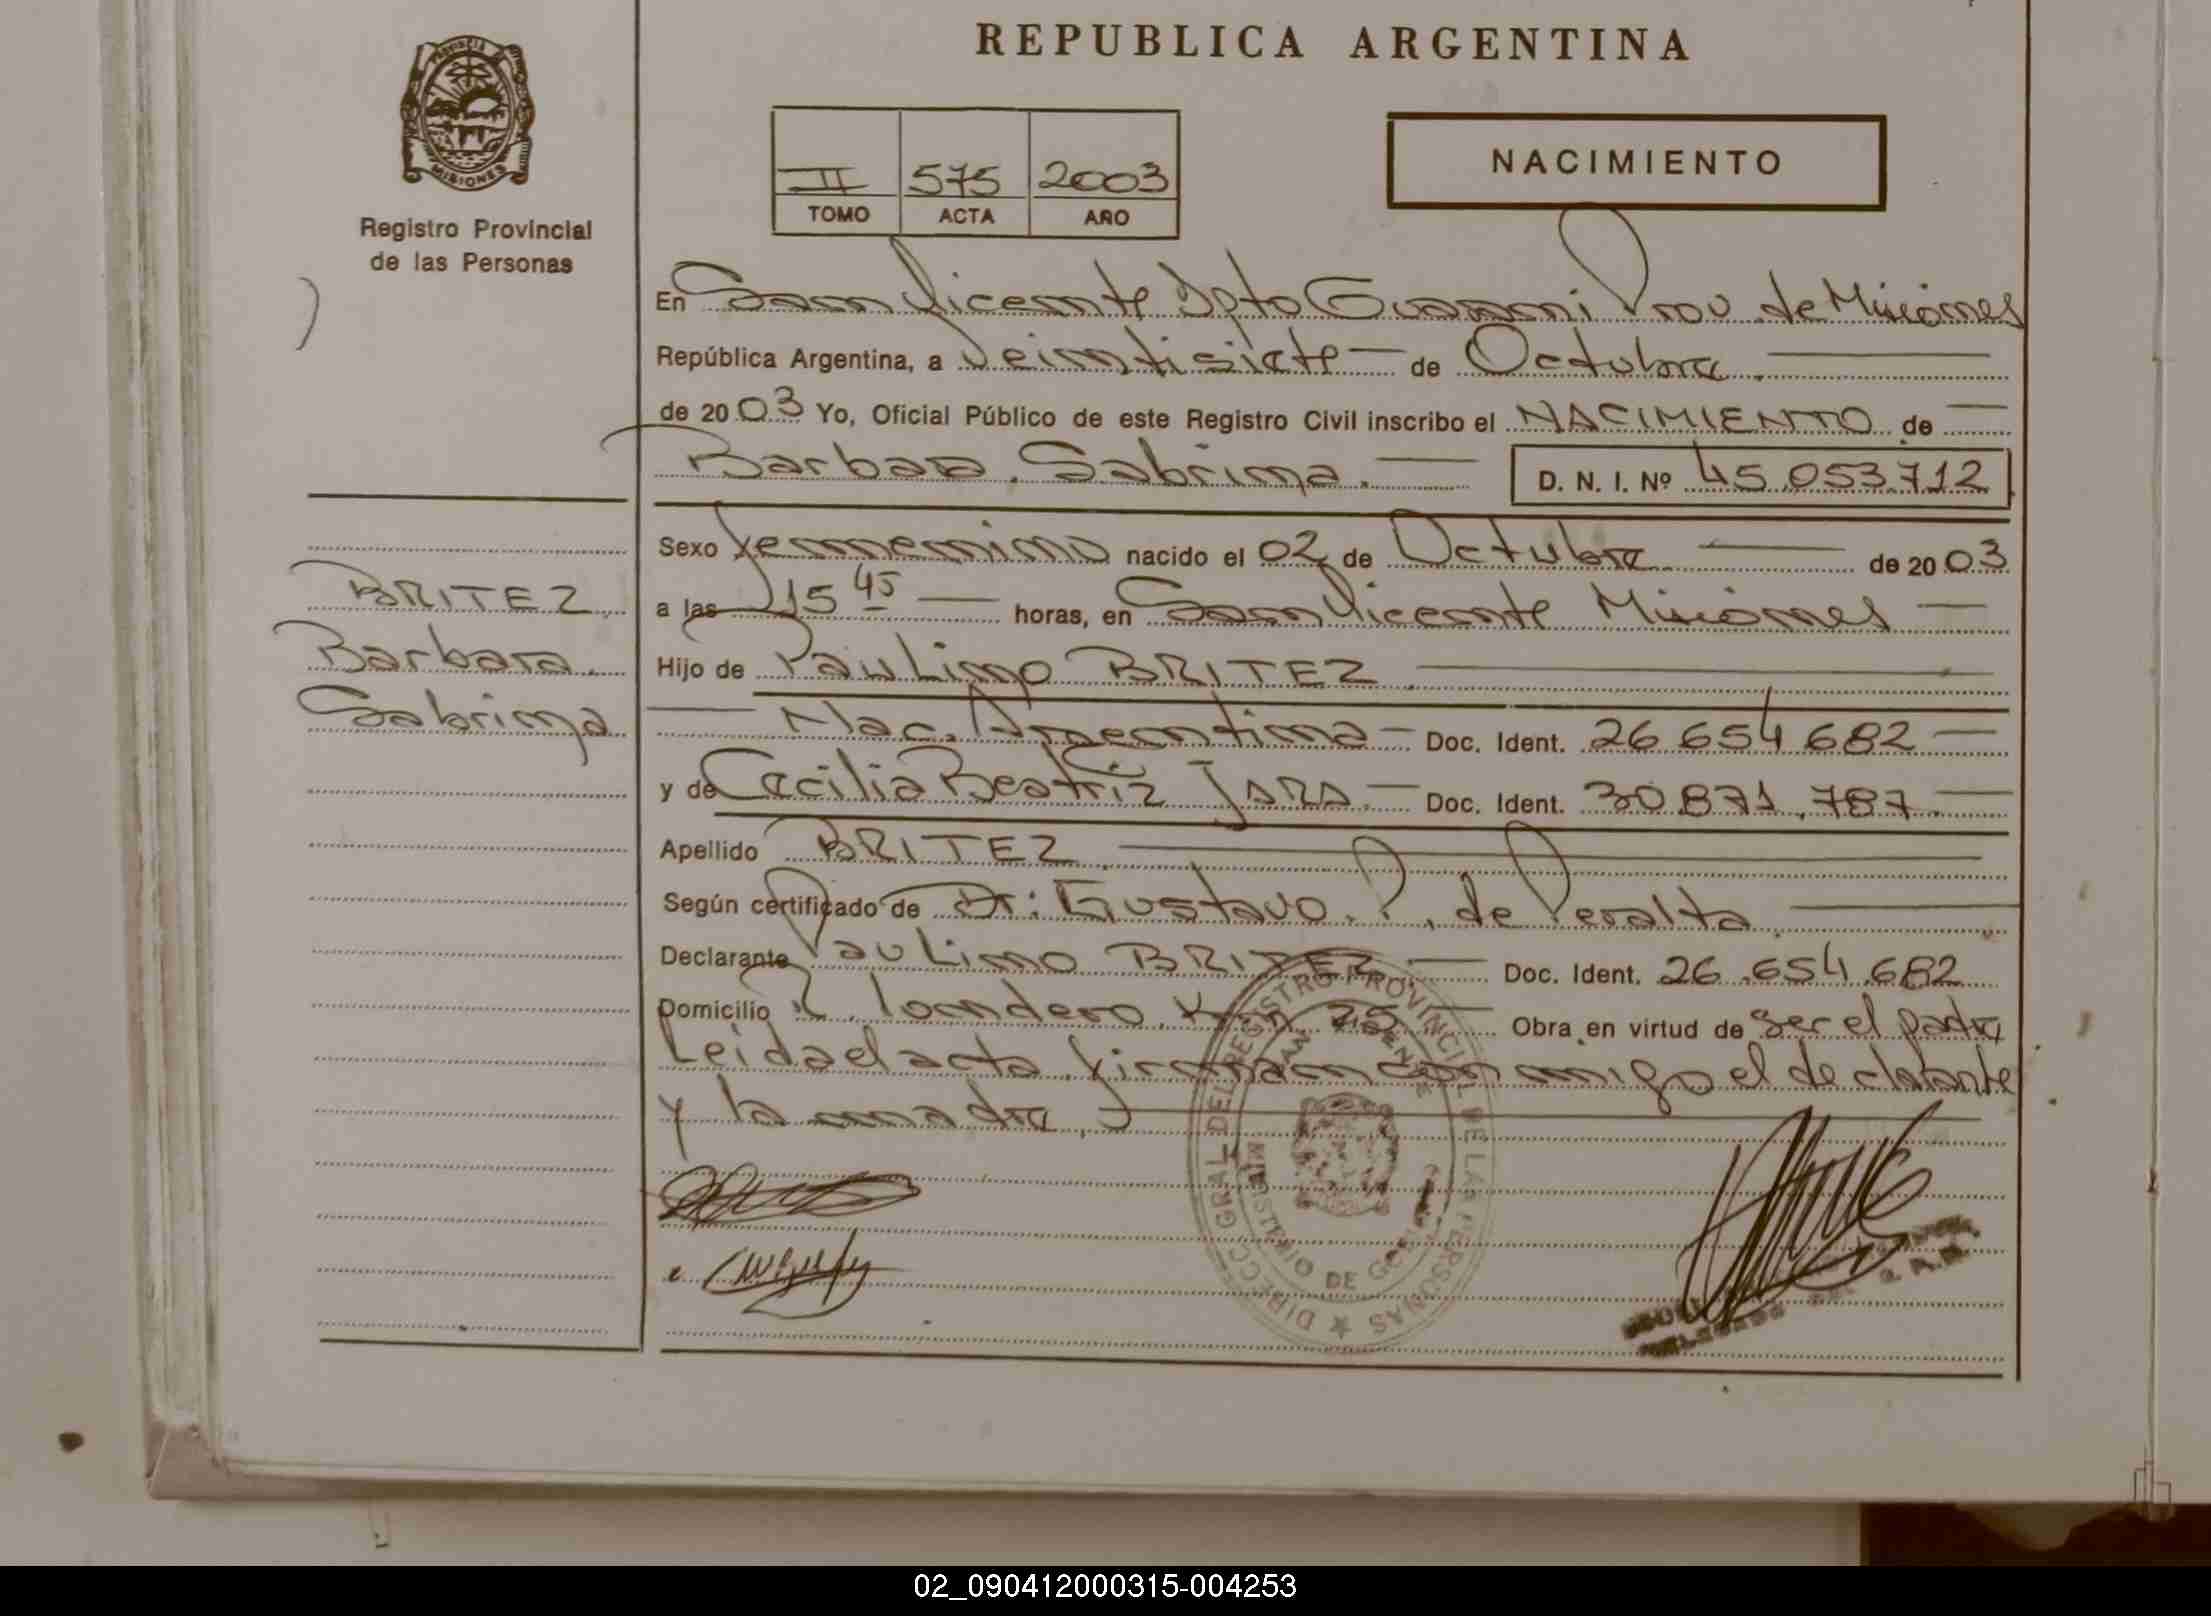 REPUBLICA ARGENTINA
PROVINCIA DE
MISIONES
Registro Provincial
de las Personas
II 575 2003
TOMO ACTA AÑO
NACIMIENTO
En San Vicente Dpto Guarani Prov de Misiónes
República Argentina, a Veintisiete de Octubre.
de 2003 Yo, Oficial Público de este Registro Civil inscribo el NACIMIENTO de
Barbara. Sabrina.
D. N. I. Nº 45.053.712
Sexo femenino nacido el 02 de Octubre de 2003
a las 15 45 horas, en San Vicente Misiónes
Hijo de Paulino BRITEZ
Nac. Argentina Doc. Ident. 26 654 682
y de Cecilia Beatriz JARA Doc. Ident. 30.871.787
Apellido BRITEZ
Según certificado de Dr: Gustavo. P. de Peralta
Declarante Paulino BRITEZ Doc. Ident. 26.654.682
Domicilio Km 25 Obra en virtud de ser el padre
Leida el acta firman con migo el declarante
y la madre.
BRITEZ
Barbara.
Sabrina
DIRECC. GRAL. DEL REGISTRO PROVINCIAL DE LAS PERSONAS
SAN VICENTE
MINISTERIO DE GOBIERNO
02_090412000315-004253